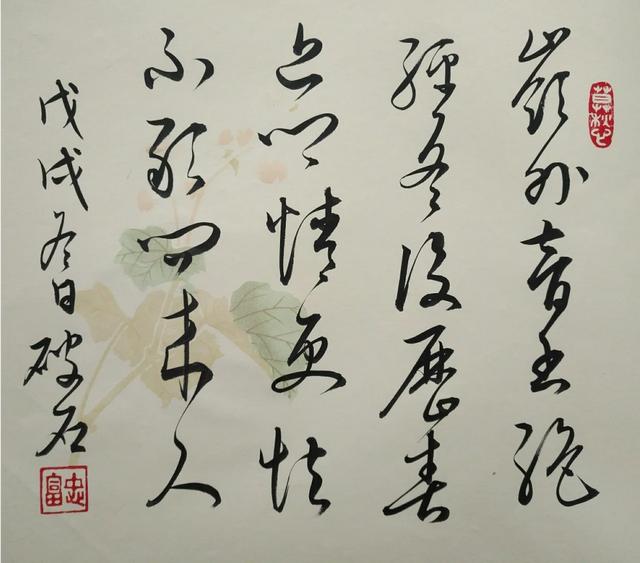 嶺外音書絕
經冬復歷春
近鄉情更怯
不敢問來人
戊戌冬日破石
忠富